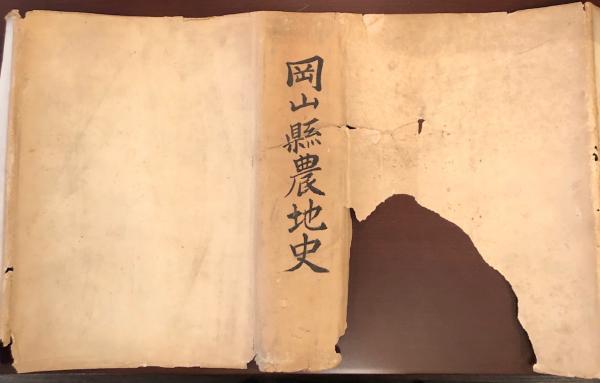 岡山縣農地史